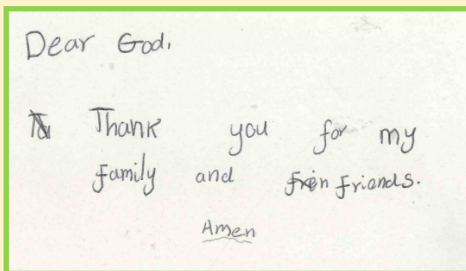 Dear God,
Thank you for my
family and friends.
Amen